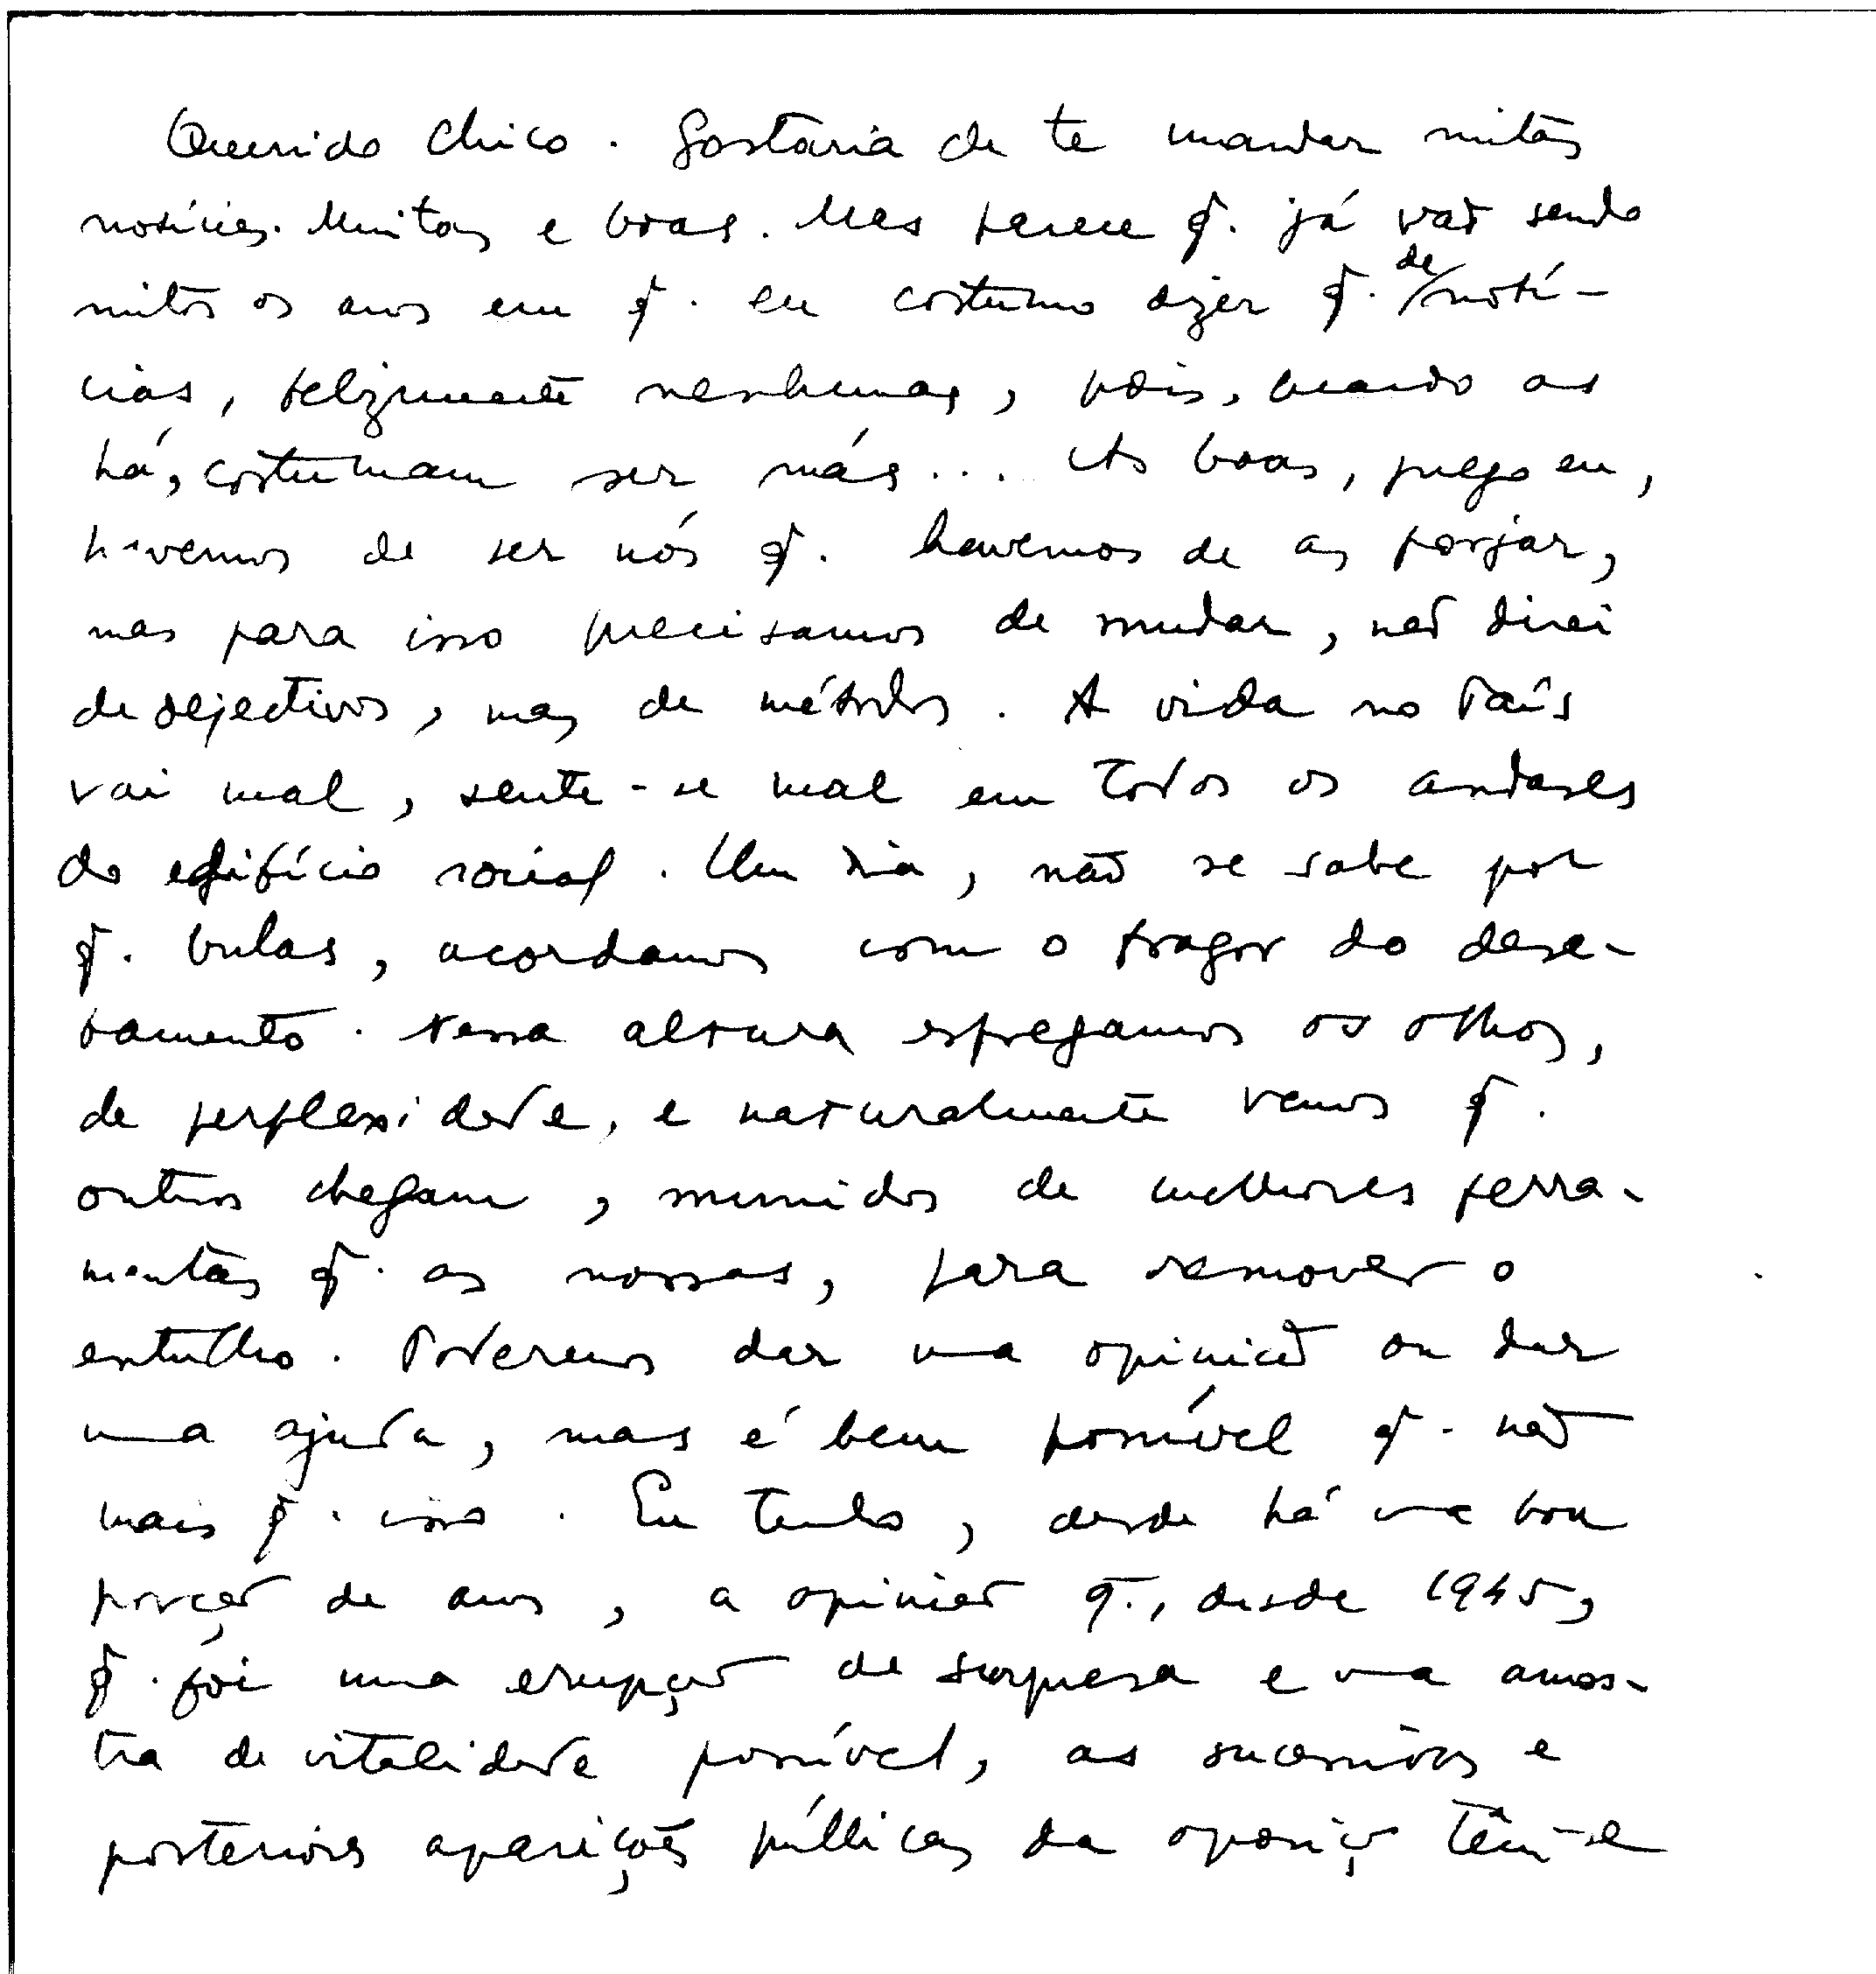 Querido Chico. Gostaria de te mandar mitas
notícias. Muitas e boas. Mas parece q. já vão sendo
mitos os anos em q. eu costumo dizer q. de notí-
cias, felizmente nenhumas, pois, quando as
há, costumam ser más... As boas, julgo eu,
havemos de ser nós q. havemos de as forjar,
mas para isso precisamos de mudar, não direi
de objectivos, mas de métodos. A vida no País
vai mal, sente-se mal em todos os andares
do edifício social. Um dia, não se sabe por
q. bulas, acordamos com o fragor do desa-
bamento. Nessa altura esfregamos os olhos,
de perplexidade, e naturalmente vemos q.
outros chegam, munidos de melhores ferra-
mentas q. as nossas, para remover o
entulho. Poderemos dar uma opinião ou dar
uma ajuda, mas é bem possível q. não
mais q. isso. Eu tenho, desde há uma boa
porção de anos, a opinião q., desde 1945,
q. foi uma erupção de surpresa e uma amos-
tra de vitalidade possível, as sucessivas e
posteriores aparições públicas da oposição têm-se